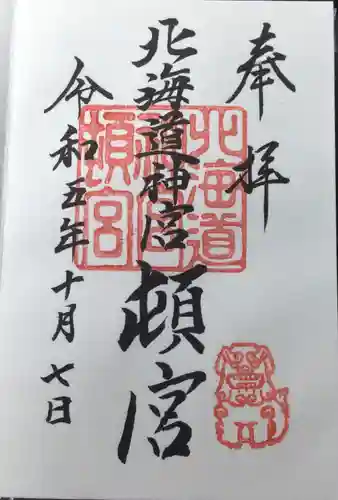 奉拝
北海道神宮頓宮
令和五年十月七日
北海道神宮頓宮